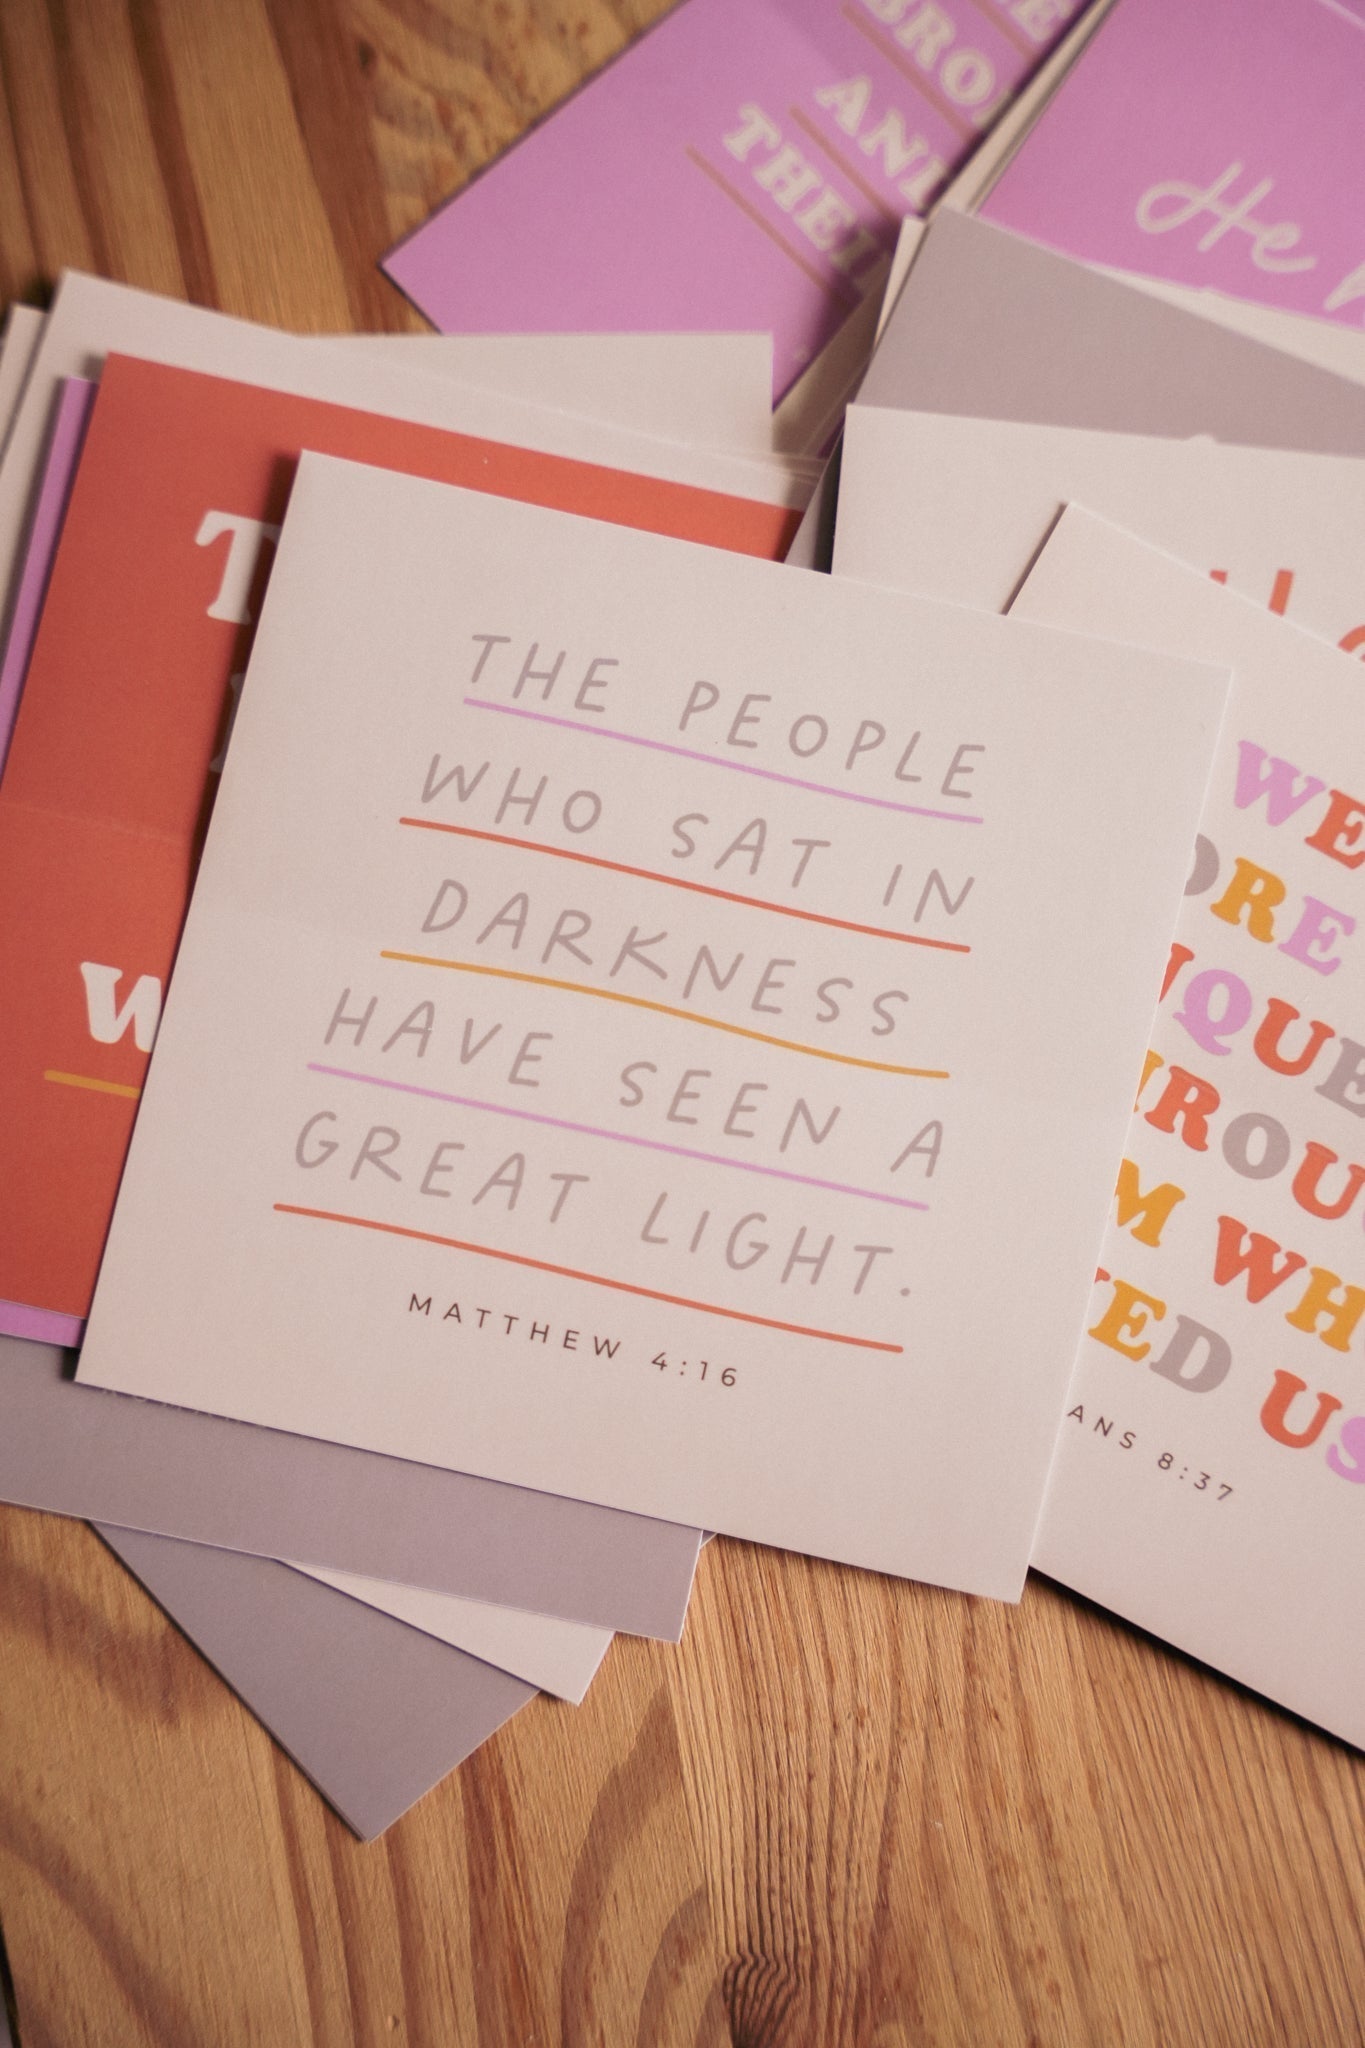 BRO
AND
THEI
He h
T
W
THE PEOPLE
WHO SAT IN
DARKNESS
HAVE SEEN A
GREAT LIGHT.
MATTHEW 4:16
WE
ORE
NQUE
HROU
M WH
VED US
ANS 8:37